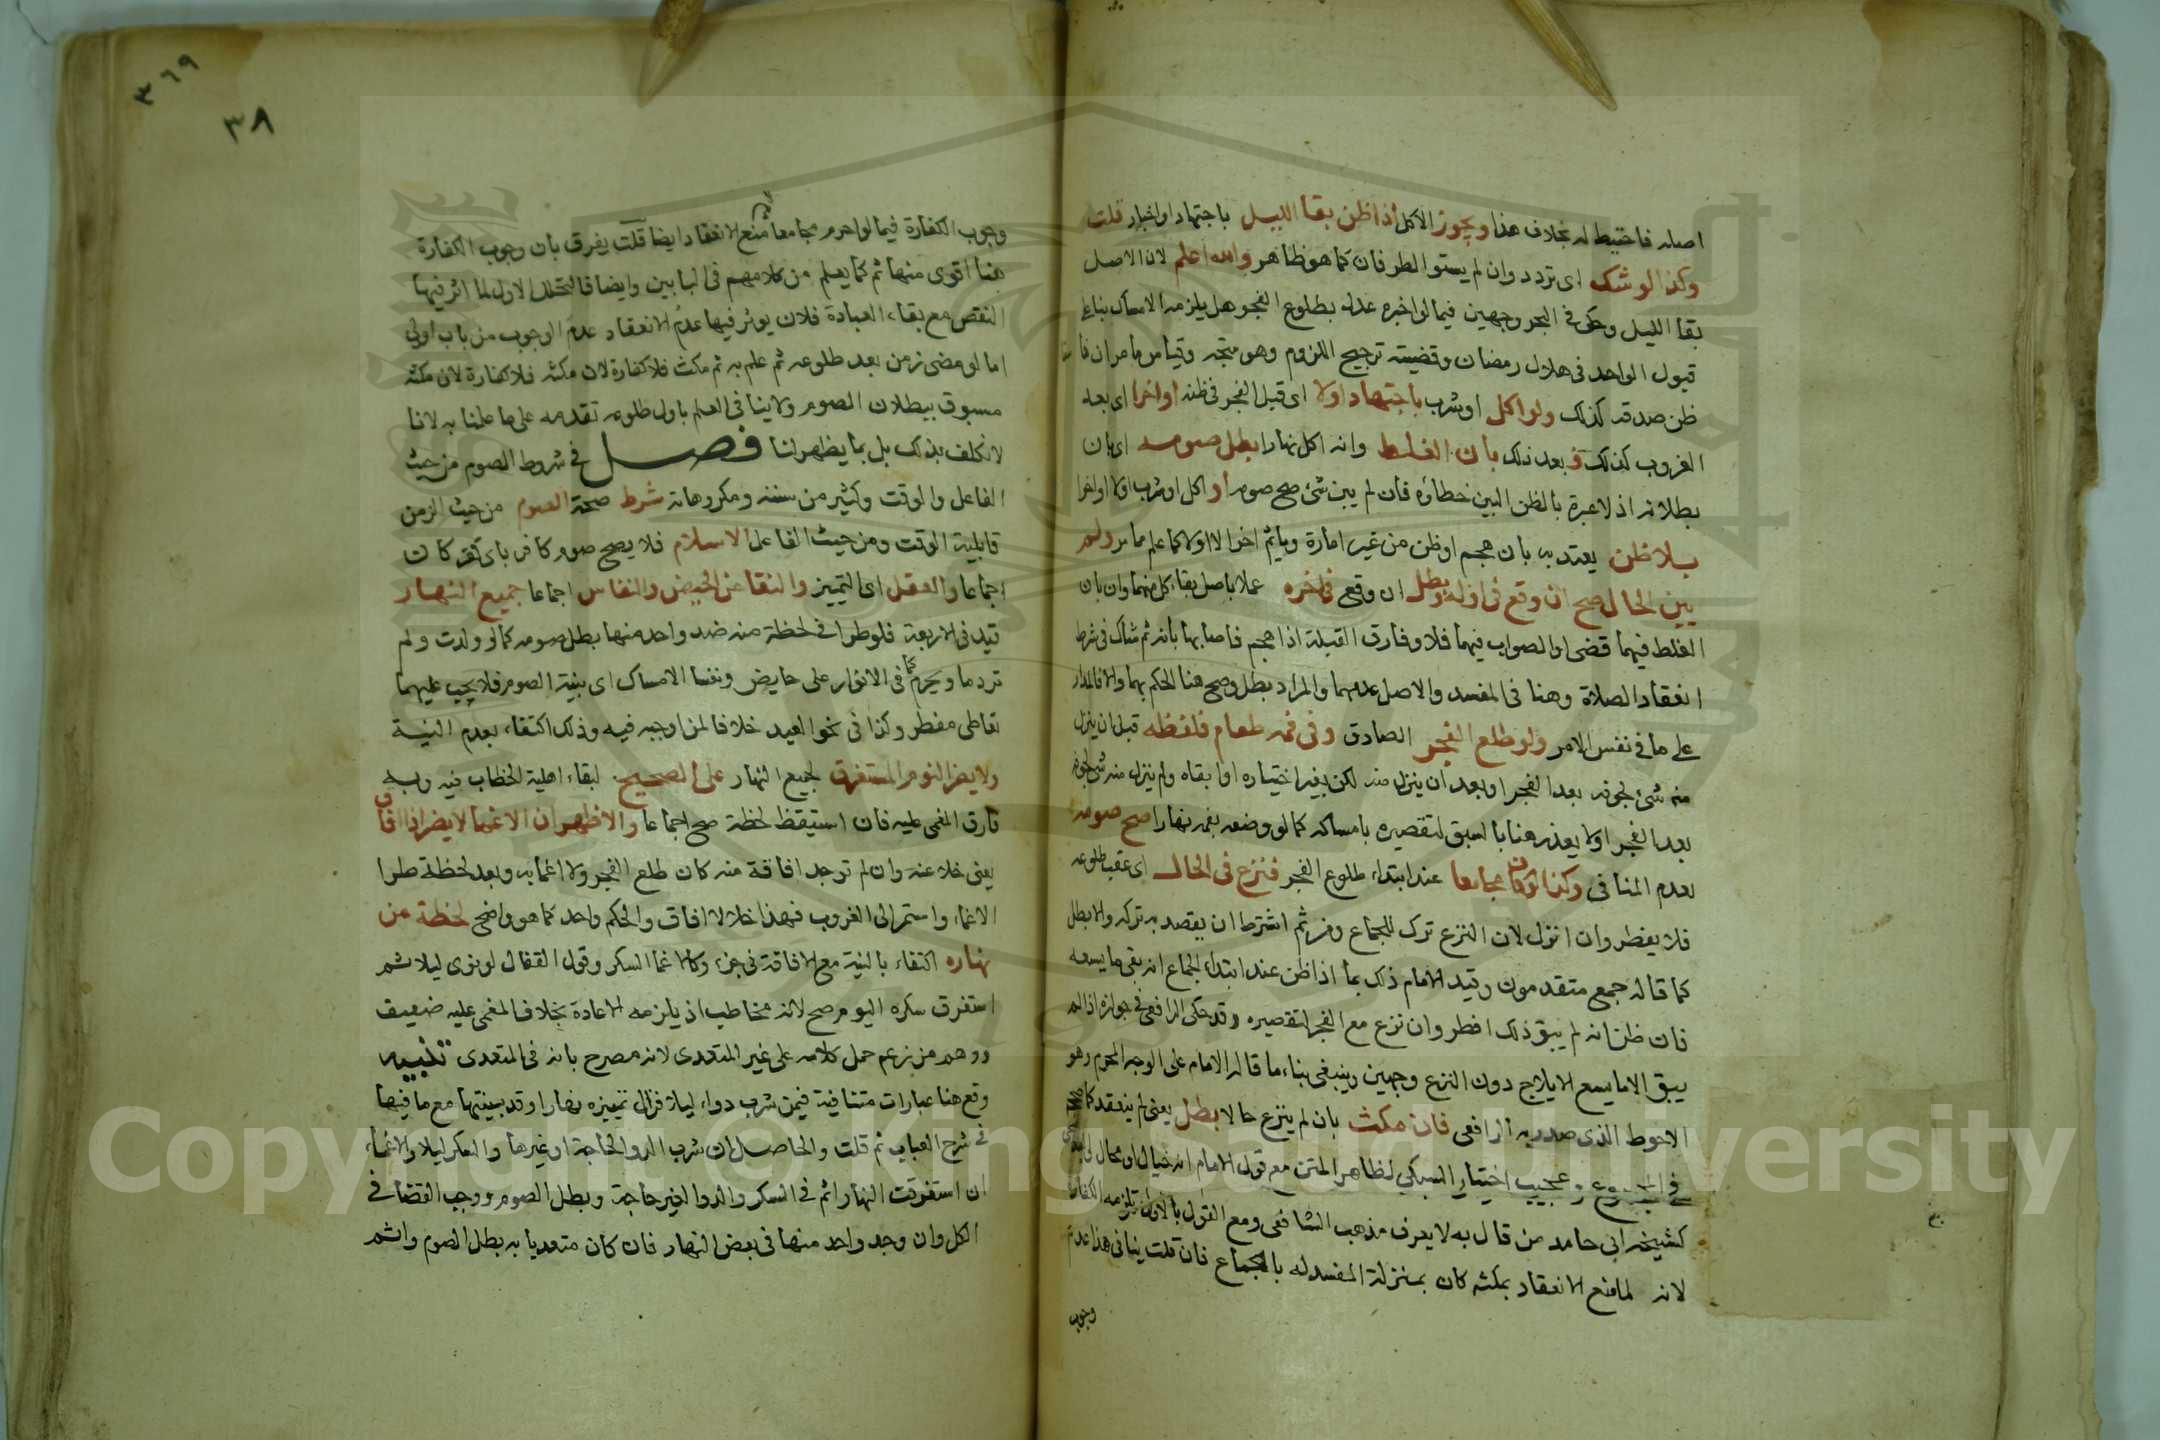 اصله فاحتيط له بخلاف هذا ويجوز الاكل اذا ظن بقا الليل باجتهاد او اخبار قلت
وكذا لو شك اى تردد وان لم يستو الطرفان كما هو ظاهر والله اعلم لان الاصل
بقا الليل وحكى في البحر وجهين فيما لو اخبره عدل بطلوع الفجر هل يلزمه الامساك بناء على
قبول الواحد فى هلال رمضان وقضيته ترجيح اللزوم وهو متجه وقياس ما مر ان فاسقا
ظن صدقه كذلك ولو اكل او شرب باجتهاد اولا اى قبل الفجر فى ظنه او اخرا اى بعد
الغروب كذلك فبعد ذلك بان الغلط وانه اكل نهارا بطل صومه اى بان
بطلانه اذ لا عبرة بالظن البين خطاؤه فان لم يبن شئ صح صومه او اكل او شرب اولا او اخرا
بلا ظن يعتد به بان هجم او ظن من غير امارة وياثم اخرا لا اولا كما علم مما مر ولم
يبن الحال صح ان وقع فى اوله وبطل ان وقع فى اخره عملا باصل بقاء كل منهما وان بان
الغلط فيهما قضى او الصواب فيهما فلا وفارق القبلة اذا هجم فاصابها بانه ثم شاك فى شرط
انعقاد الصلاة وهنا فى المفسد والاصل عدمهما والمراد ببطل وصح هنا الحكم بهما والا فالمدار
على ما فى نفس الامر ولو طلع الفجر الصادق وفى فمه طعام فلفظه قبل ان ينزل
منه شئ لجوفه بعد الفجر او بعد ان ينزل منه لكن بغير اختياره او ابقاه ولم ينزل منه شئ لجوفه
بعد الفجر اولا يعذر هنا بالسبق لتقصيره بامساكه كما لو وضعه بفمه نهارا صح صومه
لعدم المنافى وكذا لو كان مجامعا عند ابتداء طلوع الفجر فنزع فى الحال اى عقب طلوعه
فلا يفطر وان انزل لان النزع ترك للجماع ومن ثم اشترط ان يقصد به تركه والا بطل
كما قاله جمع متقدمون وقيد الامام ذلك بما اذا ظن عند ابتداء الجماع انه بقى ما يسعه
فان ظن انه لم يبق ذلك افطر وان نزع مع الفجر لتقصيره وقد حكى الرافعى فى جوازه اذا لم
يبق الا ما يسع الايلاج دون النزع وجهين وينبغى بناء ما قاله الامام على الوجه المحرم وهو
الاحوط الذى صدر به الرافعى فان مكث بان لم ينزع حالا بطل يعنى لم ينعقد كما صححه
فى المجموع وعجيب اختيار السبكي لظاهر المتن مع قول الامام انه خيال او محال
كشيخه ابى حامد من قال به لا يعرف مذهب الشافعى ومع القول بالاول تلزمه الكفارة
لانه لما منع الانعقاد بمكثه كان بمنزلة المفسد له بالجماع فان قلت ينافى هذا عدم
وجوب
٣٦٩
٣٨
وجوب الكفارة فيما لو احرم مجامعا منع الانعقاد ايضا قلت يفرق بان وجوب الكفارة
هنا اقوى منها ثم كما يعلم من كلامهم فى البابين وايضا فالتحلل الاول لما اثر فيها
النقص مع بقاء العبادة فلان يوثر فيها عدم الانعقاد عدم الوجوب من باب اولى
اما لو مضى زمن بعد طلوعه ثم علم به ثم مكث فلا كفارة لان مكثه فلا كفارة لان مكثه
مسبوق ببطلان الصوم ولا ينافى العلم باول طلوعه تقدمه على ما علمنا به لانا
لا نكلف بذلك بل بما يظهر لنا فصل فى شروط الصوم من حيث
الفاعل والوقت وكثير من سننه ومكروهاته شرط صحة الصوم من حيث الزمن
قابلية الوقت ومن حيث الفاعل الاسلام فلا يصح صوم كافر باى كفر كان
اجماعا والعقل اى التمييز والنقا عن الحيض والنفاس اجماعا جميع النهار
قيد فى الاربعة فلو طرا فى لحظة منه ضد واحد منها بطل صومه كما لو ولدت ولم
تر دما ويحرم كما فى الانوار على حايض ونفسا الامساك اى بنية الصوم فلا يجب عليهما
تعاطى مفطر وكذا فى نحو العيد خلافا لمن اوجبه فيه وذلك اكتفاء بعدم النية
ولا يضر النوم المستغرق لجميع النهار على الصحيح لبقاء اهلية الخطاب فيه وبه
فارق المغمى عليه فان استيقظ لحظة صح اجماعا والاظهر ان الاغما لا يضر اذا افاق
يعنى خلا عنه وان لم توجد افاقة منه كان طلع الفجر ولا اغما به وبعد لحظة طرا
الاغماء واستمر الى الغروب فهذا خلا لا افاق والحكم واحد كما هو واضح لحظة من
نهاره اكتفاء بالنية مع الافاقة فى جزء وكالاغما السكر وقول القفال لو نوى ليلا ثم
استغرق سكره اليوم صح لانه مخاطب اذ يلزمه الاعادة بخلاف المغمى عليه ضعيف
ووهم من زعم حمل كلامه على غير المتعدى لانه مصرح بانه فى المتعدى تنبيه
وقع هنا عبارات متنافية فيمن شرب دواء ليلا فزال تمييزه نهارا وقد بينتها مع ما فيها
فى شرح العباب ثم قلت والحاصل ان شرب الدوا لحاجة او غيرها والسكر ليلا والاغماء
ان استغرقت النهار اثم فى السكر والدوا لغير حاجة وبطل الصوم ووجب القضا فى
الكل وان وجد واحد منها فى بعض النهار فان كان متعديا به بطل الصوم واثم
Copyright © King Saud University